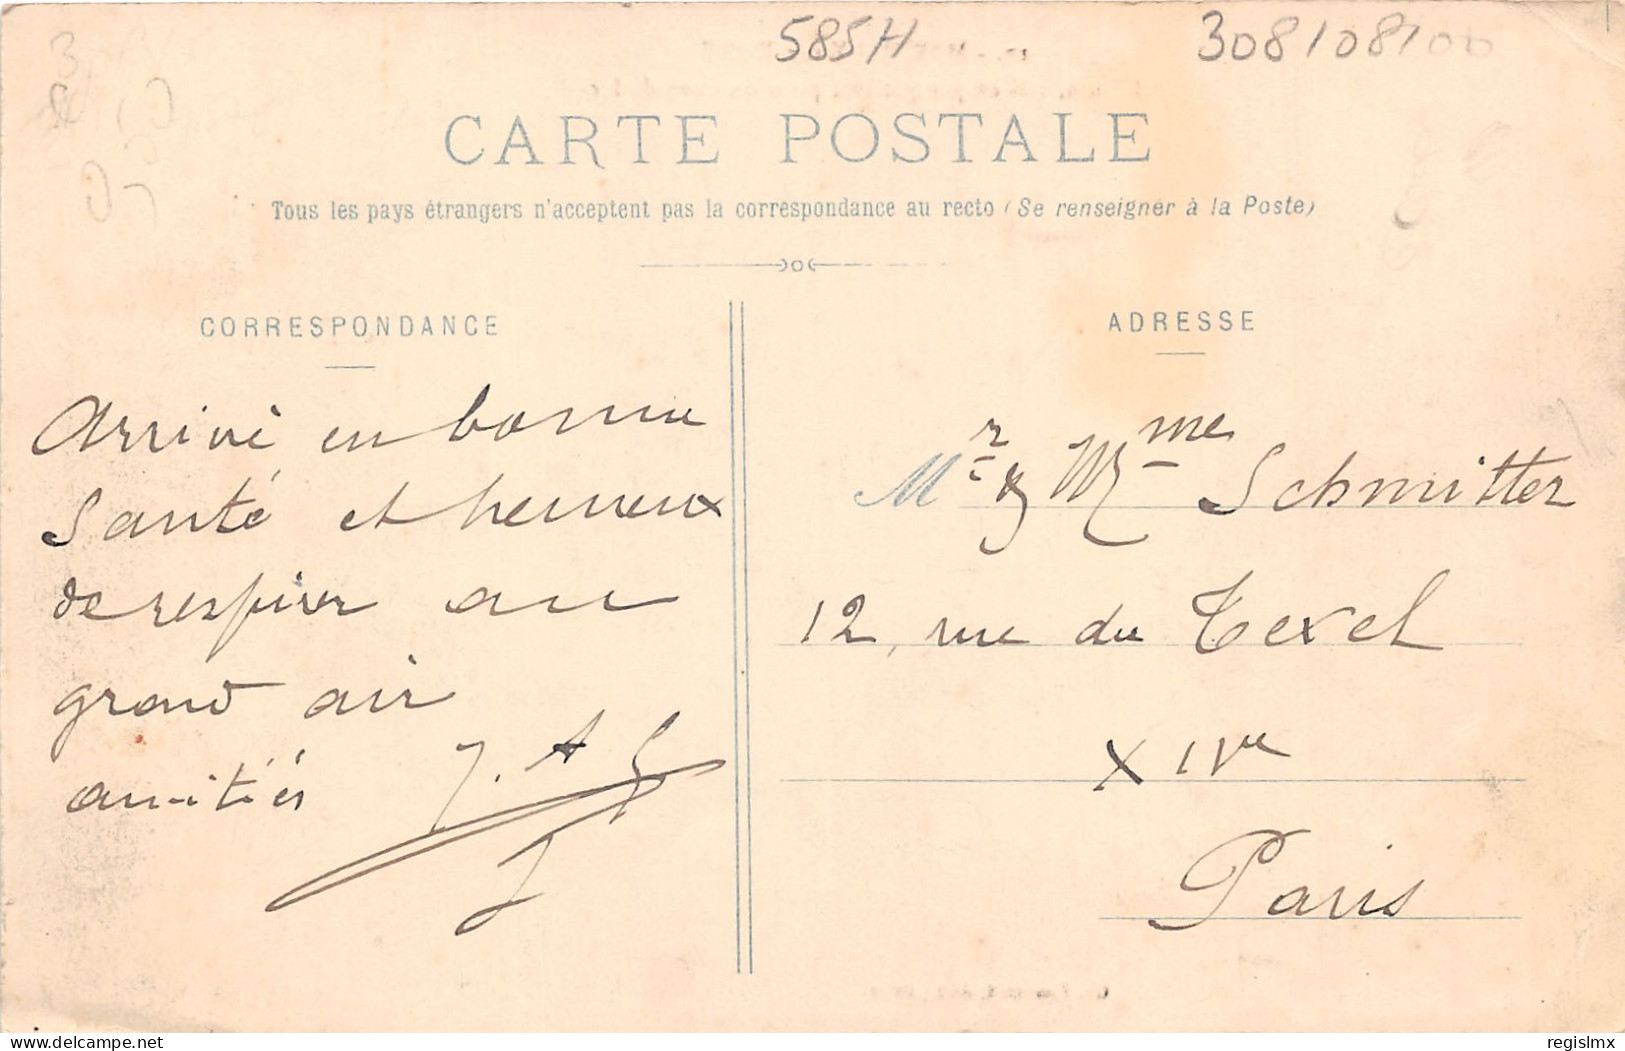 585H
308/08/00
CARTE POSTALE
Tous les pays étrangers n'acceptent pas la correspondance au recto (Se renseigner à la Poste)
CORRESPONDANCE
Arrivé en bonne
Santé et heureux
de respirer au
grand air
amitiés J. A
ADRESSE
Mr & Mme Schmitter
12, rue du Texel
XIVe
Paris
delcampe.net
regislmx